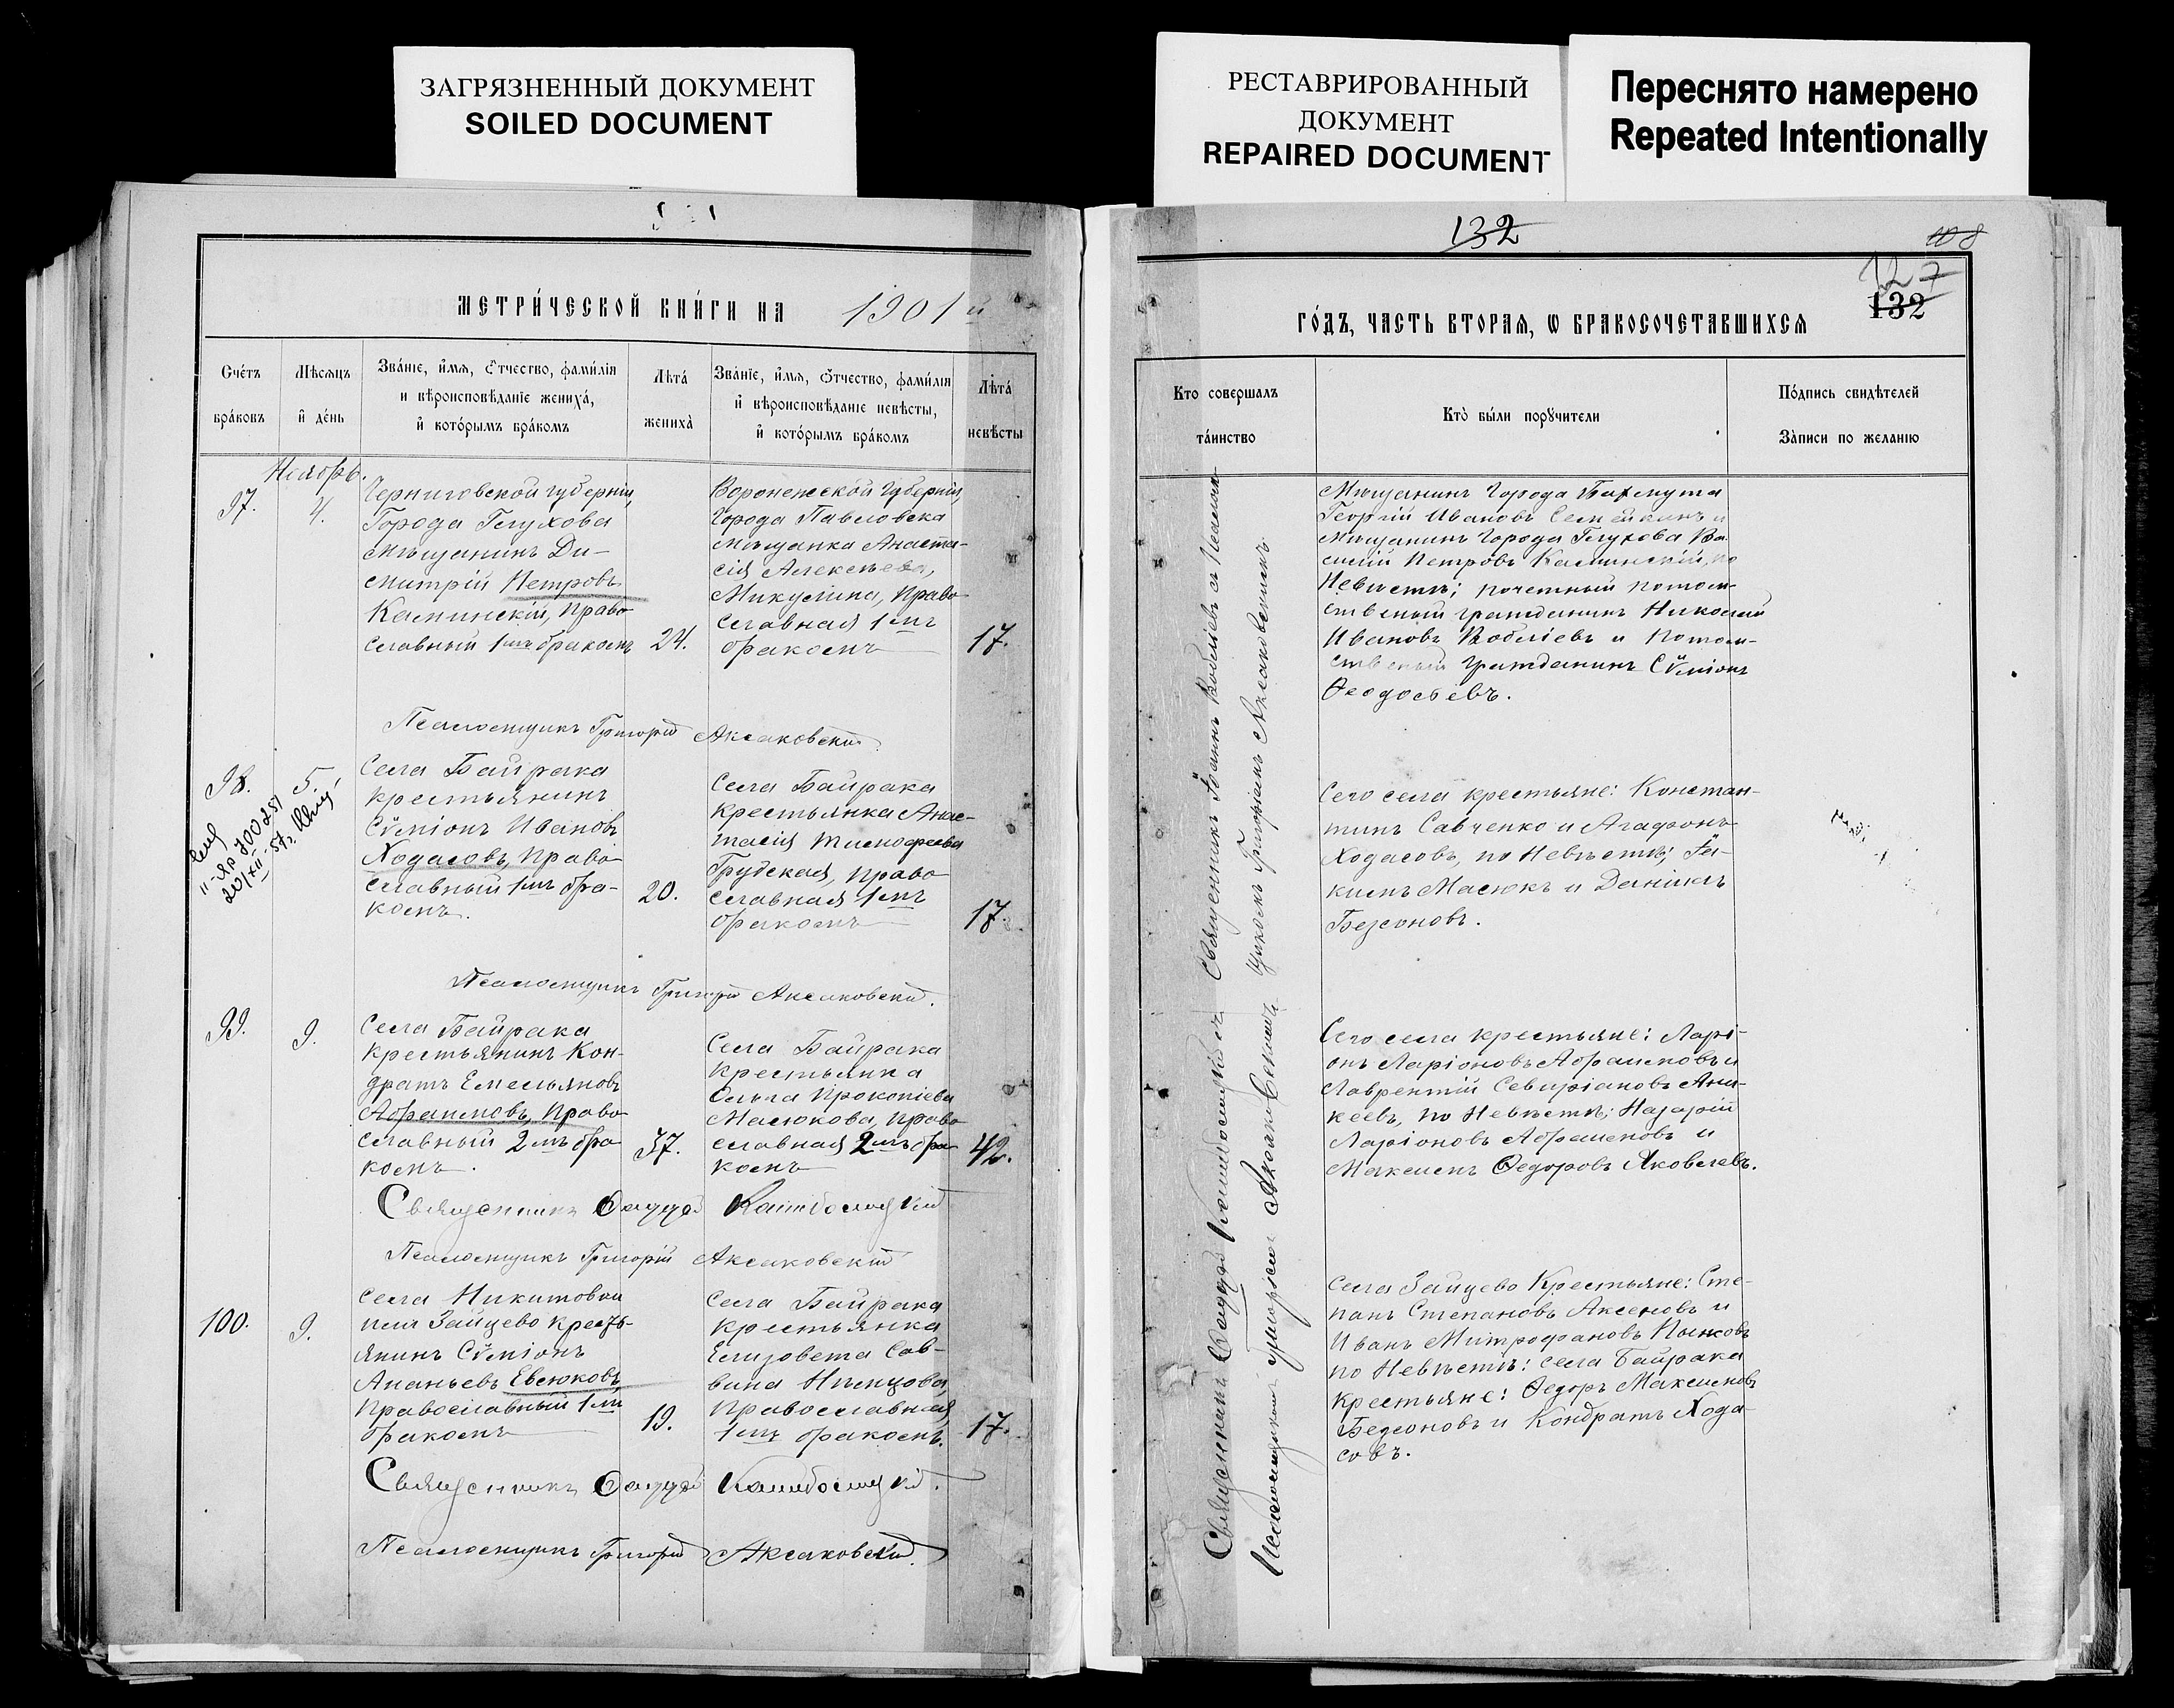 ЗАГРЯЗНЕННЫЙ ДОКУМЕНТ
SOILED DOCUMENT
РЕСТАВРИРОВАННЫЙ
ДОКУМЕНТ
REPAIRED DOCUMENT
Переснято намерено
Repeated Intentionally
МЕТРИ́ЧЕСКОЙ КНИ́ГИ НА 1901 й
Сче́тъ
бра́ковъ
Мѣсѧцъ
и҆ де́нь
Зва́нїе, и҆́мѧ, ѻ҆́тчество, фами́лїѧ
и вѣроисповѣ́данїе жениха̀,
и҆ кото́рымъ бра́комъ
Лѣ́та
жениха̀
Зва́нїе, и҆́мѧ, ѻ҆́тчество, фами́лїѧ
и҆ вѣроисповѣ́данїе невѣ́сты,
и҆ кото́рымъ бра́комъ
Лѣ́та
невѣ́сты
Ноябрь.
97.
4.
Черниговской губерніи,
Города Глухова
мѣщанинъ Ди-
митрій Петровъ
Каминскій, право
славный 1мъ бракомъ
24.
Воронежской губерніи,
Города Павловска
мѣщанка Анаста-
сія Алексѣева,
Микулина, право
славная 1мъ
бракомъ
17.
Псаломщикъ Григорій Аксаковскій
98.
5.
Села Байрака
крестьянинъ
Сѵмеонъ Ивановъ
Ходасовъ, право-
славный 1мъ бра-
комъ.
20.
Села Байрака
крестьянка Анас-
тасія Тимофеева
Грудская, право
славная 1мъ
бракомъ
17.
20/XII-57г.
Псаломщикъ Григорій Аксаковскій.
99.
9.
Села Байрака
крестьянинъ Кон-
дратъ Емельяновъ
Абрамовъ, право
славный 2мъ бра
комъ.
37.
Села Байрака
крестьянка
Прокопіева
Масюкова, право
славная 2мъ бра
комъ
42.
Священникъ
Псаломщикъ Григорій Аксаковскій
100.
9.
Села Никитовки
Зайцево кресть-
янинъ Сѵмеонъ
Ананьевъ Евсюковъ,
Православный 1мъ
бракомъ
19.
Села Байрака
крестьянка
Елизовета Сав-
вина Нѣмцова,
Православная
1мъ бракомъ.
17.
Священникъ
Псаломщикъ Григорій Аксаковскій.
132
108
127
132
ГО́ДЪ, ЧАСТЬ ВТОРАѦ, Ѡ БРАКОСОЧЕТАВШИХСѦ
Кто совершалъ
та́инство
Кто̀ бы́ли порꙋчители
По́дпись свидѣ́телей
За̀писи по желанїю
Священникъ Іоаннъ
Мѣщанинъ города Бахмута
Георгій Ивановъ Семейкинъ и
Мѣщанинъ города Глухова Ва
силій Петровъ Каминскій, по
Невѣстѣ; почетный потом-
ственый гражданинъ Николай
Ивановъ и потом-
ственый гражданинъ Сѵмеонъ
Ѳеодосьевъ.
Сего села крестьяне: Констан-
тинъ Савченко и Агафонъ
Ходасовъ, по Невѣстѣ; Іа-
кимъ Масюкъ и Даніилъ
Безсоновъ.
Сего села крестьяне: Ларі-
онъ Ларіоновъ Абрамовъ и
Лаврентій Севиріановъ Ани-
кеевъ, по Невѣстѣ; Назарій
Ларіоновъ Абрамовъ и
Максимъ Ѳедоровъ Яковлевъ.
Села Зайцево Крестьяне: Сте-
панъ Степановъ Аксеновъ и
Иванъ Митрофановъ
по Невѣстѣ: села Байрака
крестьяне: Ѳедоръ Максимовъ
Безсоновъ и Кондратъ Хода-
совъ.